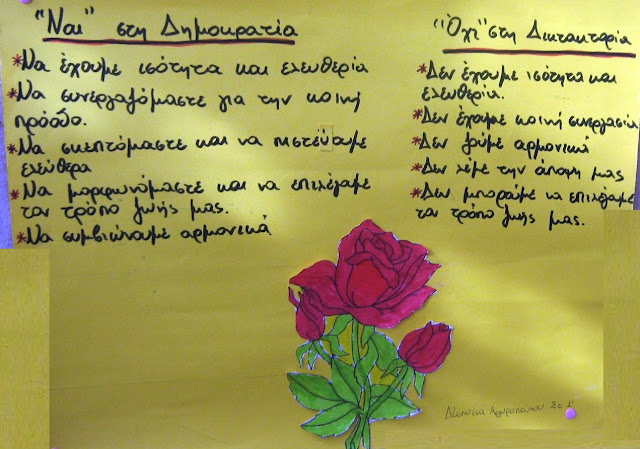 "Ναι" στη Δημοκρατία
*Να έχουμε ισότητα και ελευθερία
*Να συνεργαζόμαστε για την κοινή
πρόοδο.
*Να σκεπτόμαστε και να πιστεύουμε
ελεύθερα
*Να μορφωνόμαστε και να επιλέγουμε
τον τρόπο ζωής μας.
*Να συμβιώνουμε αρμονικά
"Όχι" στη Δικτακτορία
*Δεν έχουμε ισότητα και
ελευθερία.
*Δεν έχουμε κοινή συνεργασία
*Δεν ζούμε αρμονικά
*Δεν λέμε την άποψη μας
*Δεν μπορούμε να επιλέγουμε
τον τρόπο ζωής μας.
Δέσποινα